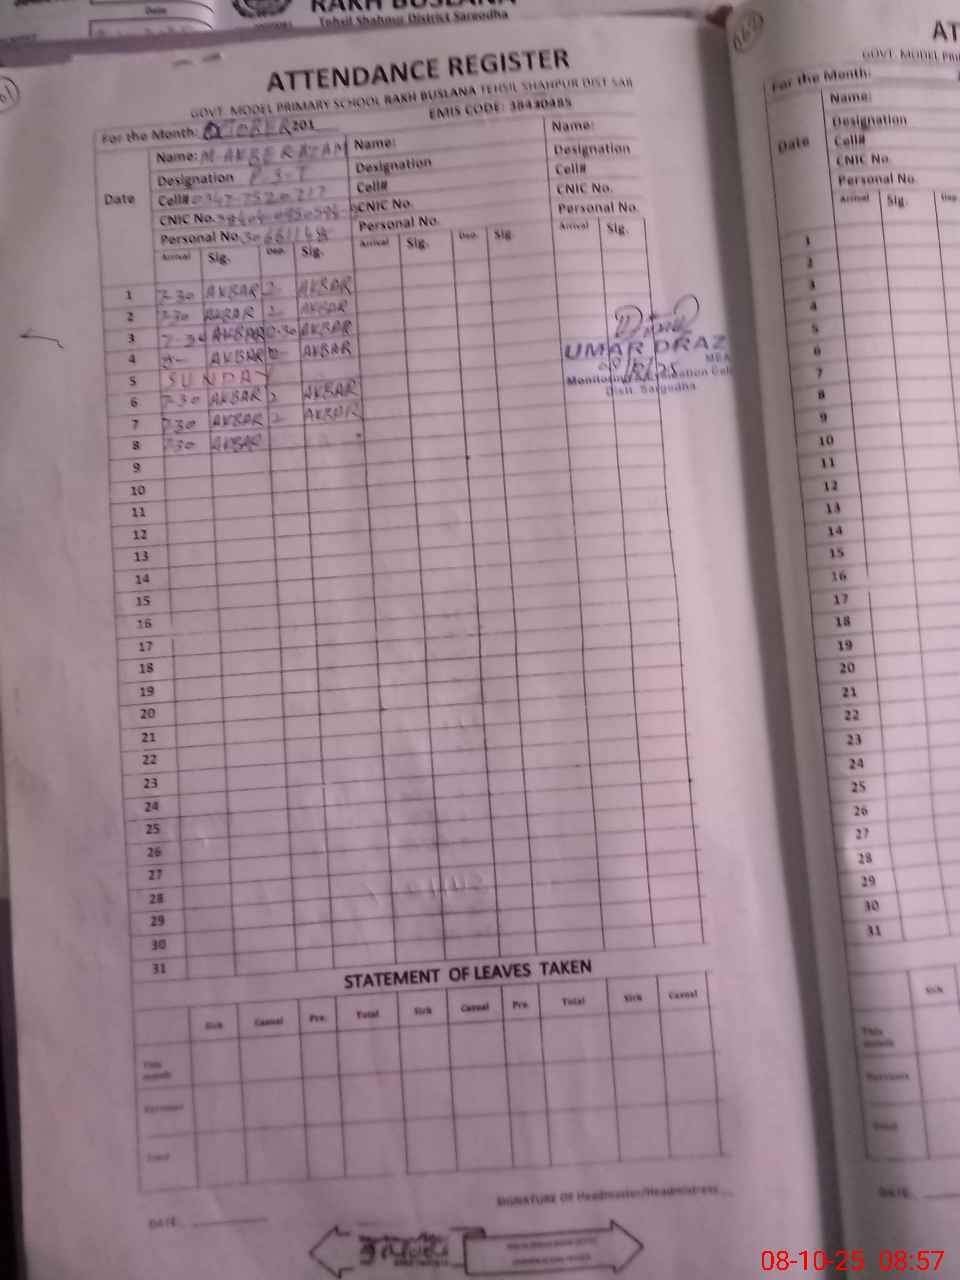 RAKH BUSLANA
Tehsil Shahpur District Sargodha
Date
ATTENDANCE REGISTER
GOVT. MODEL PRIMARY SCHOOL RAKH BUSLANA TEHSIL SHAHPUR DIST SAR
EMIS CODE: 38430485
For the Month: OCTOBER 201
Date
Name: M-AKBER AZAM Name: Name:
Designation P.S.T Designation Designation
Cell# Cell# Cell#
CNIC No. CNIC No. CNIC No.
Personal No. Personal No. Personal No.
Arrival Sig. Dep. Sig. Arrival Sig. Dep. Sig. Arrival Sig.
1 7-30 AKBAR 2- AKBAR
2 7-30 AKBAR 2- AKBAR
3 AKBAR AKBAR
4 AKBAR AKBAR
5 SUNDAY
6 7-30 AKBAR 2 AKBAR
7 7-30 AKBAR 2 AKBAR
8 7-30 AKBAR
9
10
11
12
13
14
15
16
17
18
19
20
21
22
23
24
25
26
27
28
29
30
31
UMAR DRAZ
MEA
Distt. Sargodha
STATEMENT OF LEAVES TAKEN
Sick Casual Pre. Total Sick Casual Pre. Total Sick Casual
This month
Previous
Total
SIGNATURE OF Headmaster/Headmistress
DATE:
AT
GOVT. MODEL PRI
For the Month:
Date
Name:
Designation
Cell#
CNIC No.
Personal No.
Arrival Sig. Dep.
1
2
3
4
5
6
7
8
9
10
11
12
13
14
15
16
17
18
19
20
21
22
23
24
25
26
27
28
29
30
31
Sick
This month
Previous
Total
DATE:
08-10-25 08:57